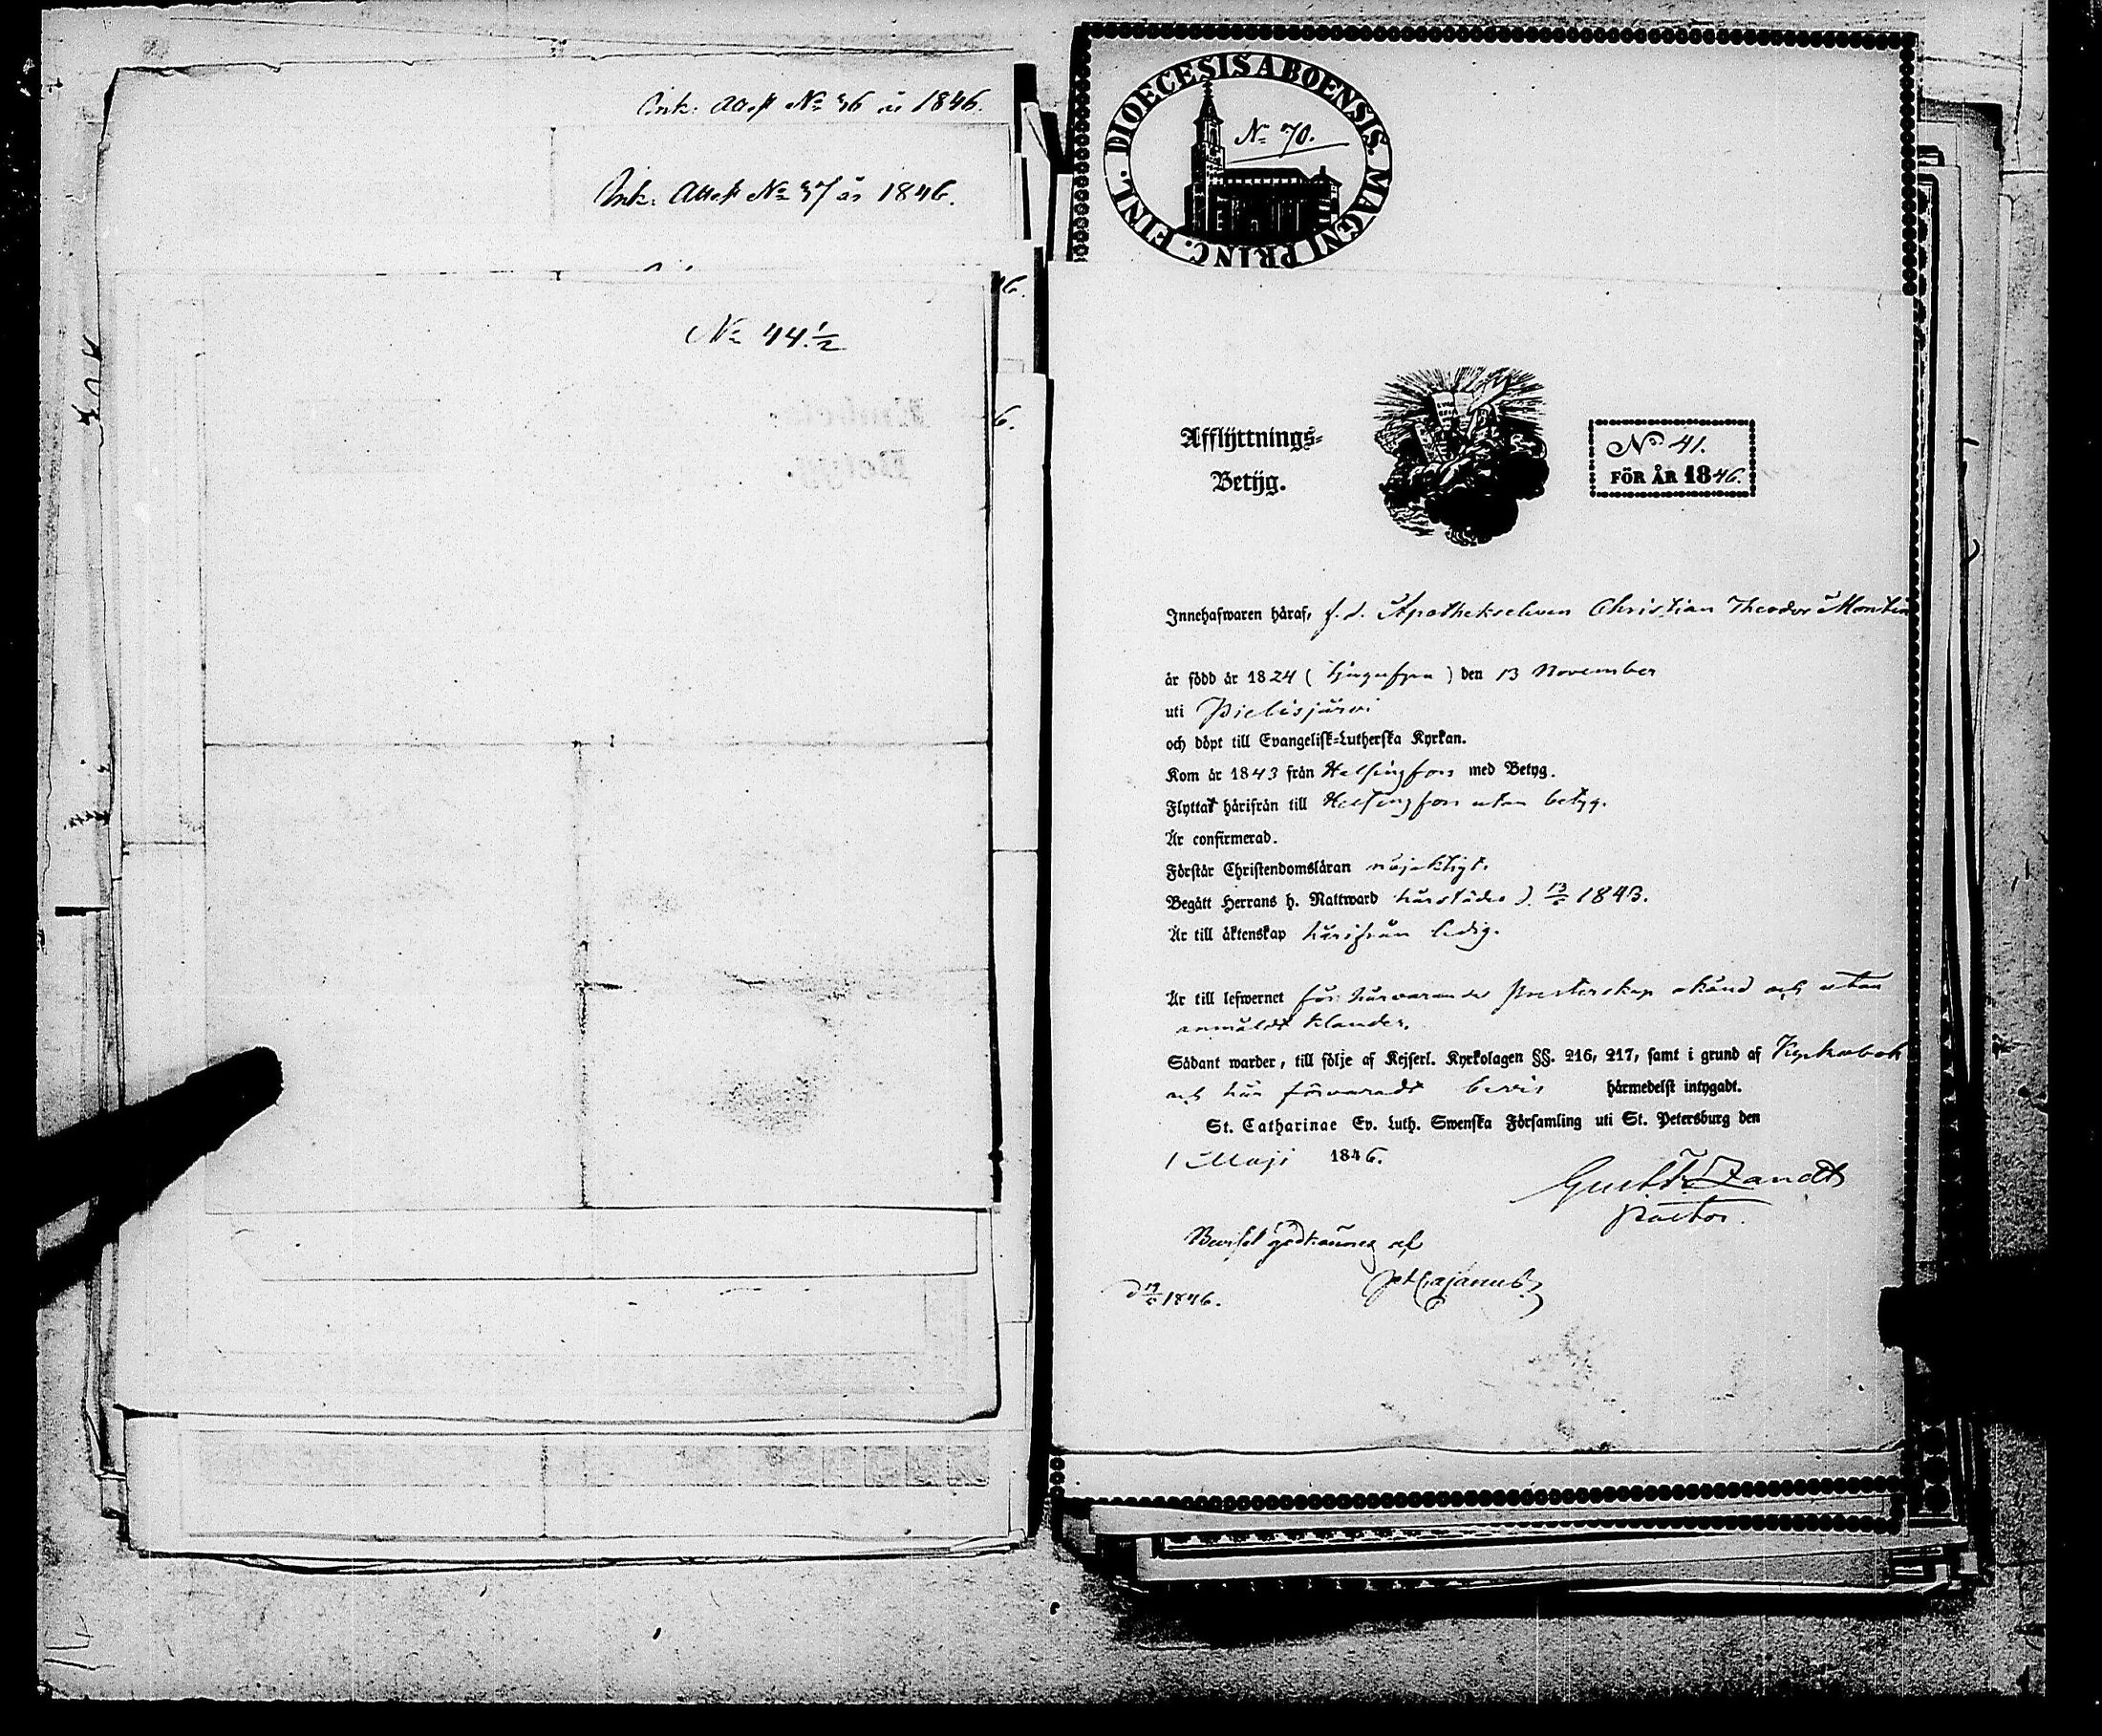 Ink: Attest No 36 år 1846.
Ink. Attest No 37 år 1846.
No 44.½
DIOECESIS ABOENSIS. MAGNI PRINC. FINL.
No 70.
Afflyttnings-
Betyg.
No. 41.
FÖR ÅR 1846.
Innehafwaren häraf, f.d. Apothekseleven Christian Theodor
är född år 1824 (tjugufyra) den 13 November
uti Pielisjärvi
och döpt till Evangelisk-Lutherska Kyrkan.
Kom år 1843 från Helsingfors med Betyg.
Flyttat härifrån till Helsingfors utan betyg.
Är confirmerad.
Förstår Christendomsläran nöjaktigt.
Begått Herrans h. Nattward härstädes d. 1843.
Är till äktenskap härifrån ledig.
Är till lefwernet för härvarande Presterskap okänd och utan
anmäldt klander.
Sådant warder, till följe af Kejserl. Kyrkolagen §§. 216, 217, samt i grund af Kyrkobok
och här förvaradt bevis härmedelst intygadt.
St. Catharinae Ev. Luth. Swenska Församling uti St. Petersburg den
1 Maji 1846.
Gust. Fr. Zandt
Pastor.
Beviset godkännes af
J Cajanus
1846.